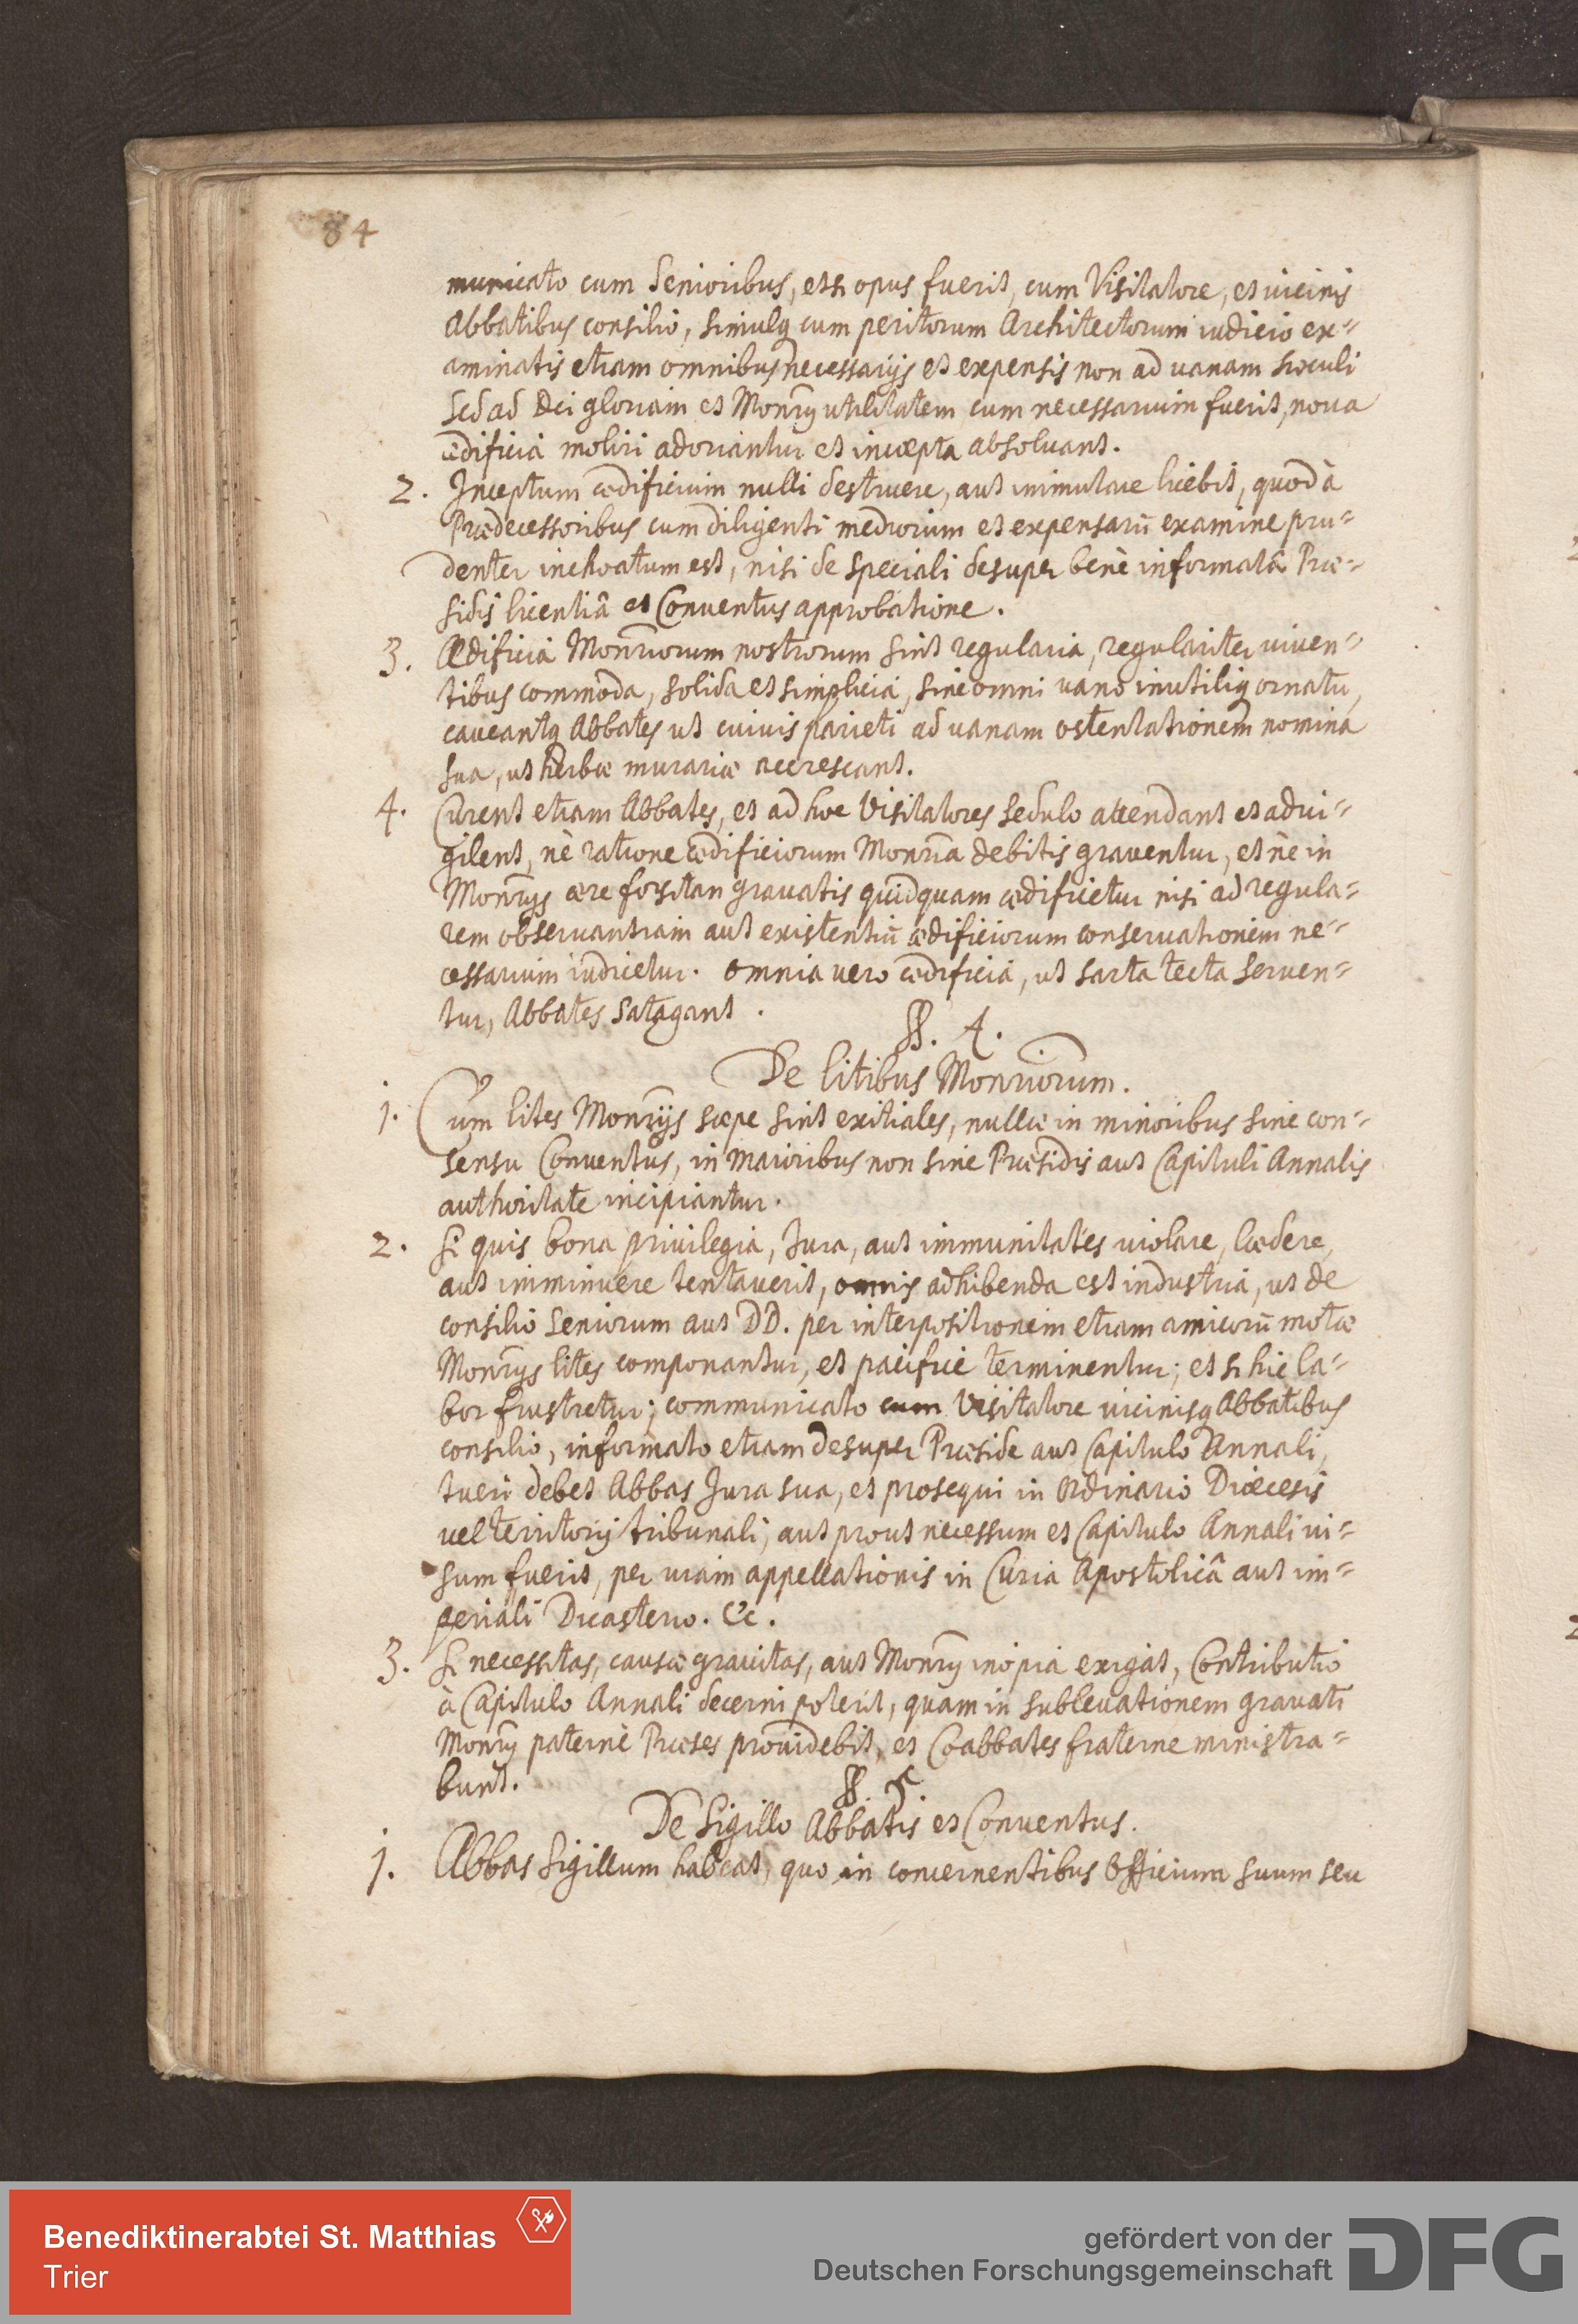 84
municato cum Senioribus, et si opus fuerit, cum Visitatore, et vicinis
Abbatibus consilio, simulq cum peritorum Architectorum iudicio ex=
aminatis etiam omnibus necessarijs et expensis non ad vanam
sed ad Dei gloriam et Monrij utilitatem cum necessarium fuerit, nova
ædificia moliri adoriantur et incæpta absolvant.
2. Inceptum ædificium nulli destruere, aut immutare licebit, quod à
Prædecessoribus cum diligenti mediorum et expensarū examine pru=
denter inchoatum est, nisi de speciali desuper benè informatâ Præ=
sidis licentiâ et Conventus approbatione.
3. Ædificia Monriorum nostrorum sint regularia, regulariter viven=
tibus commoda, solida et simplicia, sine omni vano inutiliq ornatu,
caveantq Abbates ut cuivis parieti ad vanam ostentationem nomina
sua, ut herbæ murariæ accrescant.
4. Curent etiam Abbates, et ad hoc Visitatores sedulo attendant et advi=
gilent, nè ratione ædificiorum Monria debitis graventur, et nè in
Monrijs ære forsitan gravatis quidquam ædificetur nisi ad regula=
rem observantiam aut existentiū ædificiorum conservationem ne=
cessarium iudicetur. Omnia vero ædificia, ut sarta tecta serven=
tur, Abbates satagant.
§. 4.
De litibus Monriorum.
1. Cum lites Monrijs sæpe sint exitiales, nullæ in minoribus sine con=
sensu Conventus, in maioribus non sine Præsidis aut Capituli Annalis
authoritate incipiantur.
2. Si quis bona privilegia, Jura, aut immunitates violare, lædere,
aut imminuere tentaverit, omnis adhibenda est industria, ut de
consilio Seniorum aut DD. per interpositionem etiam amicorū motæ
Monrijs lites componantur, et pacificè terminentur; et si hic la=
bor frustretur; communicato cum Visitatore vicinisq Abbatibus
consilio, informato etiam desuper Præside aut Capitulo Annali,
tueri debet Abbas Jura sua, et prosequi in Ordinario Diæcesis
vel territorij tribunali, aut prout necessum et Capitulo Annali vi=
sum fuerit, per viam appellationis in Curia Apostolicâ aut im=
periali Dicasterio. &c.
3. Si necessitas, causæ gravitas, aut Monrij inopia exigat, Contributio
à Capitulo Annali decerni poterit, quam in sublevationem gravati
Monrij paternè Præses providebit, et Coabbates fraterne ministra=
bunt.
§. 5
De Sigillo Abbatis et Conventus.
1. Abbas Sigillum habeat, quo in concernentibus Officium suum seu
Benediktinerabtei St. Matthias
Trier
gefördert von der
Deutschen Forschungsgemeinschaft
DFG